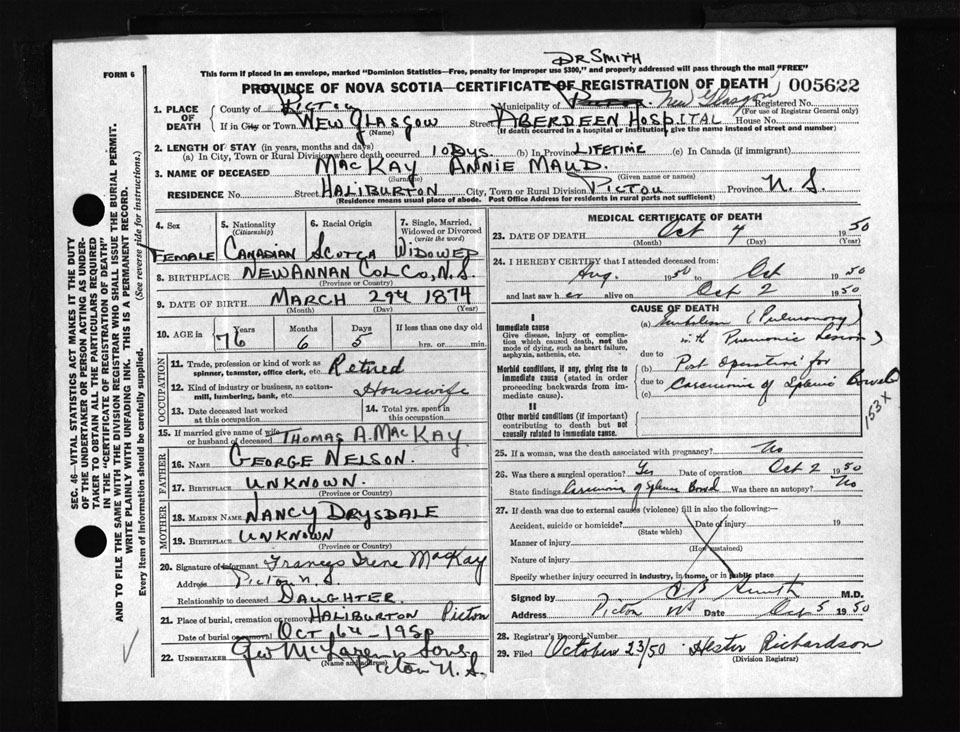 DR SMITH
FORM 6
This form if placed in an envelope, marked "Dominion Statistics—Free, penalty for improper use $300," and properly addressed will pass through the mail "FREE"
PROVINCE OF NOVA SCOTIA—CERTIFICATE OF REGISTRATION OF DEATH 005622
1. PLACE OF DEATH County of Pictou Municipality of New Glasgow Registered No.
(For use of Registrar General only)
If in City or Town NEW GLASGOW Street ABERDEEN HOSPITAL House No.
(Name) (If death occurred in a hospital or institution, give the name instead of street and number)
2. LENGTH OF STAY (in years, months and days)
(a) In City, Town or Rural Division where death occurred 10 DYS. (b) In Province LIFETIME (c) In Canada (if immigrant)
3. NAME OF DECEASED MACKAY ANNIE MAUD.
(Surname) (Given name or names)
RESIDENCE No. Street HALIBURTON City, Town or Rural Division PICTOU Province N. S.
(Residence means usual place of abode. Post Office Address for residents in rural parts not sufficient)
4. Sex 5. Nationality (Citizenship) 6. Racial Origin 7. Single, Married, Widowed or Divorced (write the word)
FEMALE CANADIAN SCOTCH WIDOWED
8. BIRTHPLACE NEW ANNAN COL CO, N.S.
(Province or Country)
9. DATE OF BIRTH MARCH 29th 1874
(Month) (Day) (Year)
10. AGE in Years 76 Months 6 Days 5 If less than one day old hrs. or min.
OCCUPATION
11. Trade, profession or kind of work as spinner, teamster, office clerk, etc. Retired
12. Kind of industry or business, as cotton-mill, lumbering, bank, etc. Housewife
13. Date deceased last worked at this occupation 14. Total yrs. spent in this occupation
15. If married give name of wife or husband of deceased THOMAS A. MACKAY.
FATHER
16. NAME GEORGE NELSON.
17. BIRTHPLACE UNKNOWN.
(Province or Country)
MOTHER
18. MAIDEN NAME NANCY DRYSDALE
19. BIRTHPLACE UNKNOWN
(Province or Country)
20. Signature of informant Frances Irene MacKay
Address Pictou N. S.
Relationship to deceased DAUGHTER.
21. Place of burial, cremation or removal HALIBURTON Pictou
Date of burial or removal OCT 6th - 1950
22. UNDERTAKER Geo McLaren & Sons
(Name and address)
Pictou N. S.
MEDICAL CERTIFICATE OF DEATH
23. DATE OF DEATH Oct 4 1950
(Month) (Day) (Year)
24. I HEREBY CERTIFY that I attended deceased from:
Aug. 1950 to Oct 1950
and last saw her alive on Oct 2 1950
CAUSE OF DEATH
I
Immediate cause
Give disease, injury or complication which caused death, not the mode of dying, such as heart failure, asphyxia, asthenia, etc.
(a) Embolism (Pulmonary) with Pneumonic Lesion)
due to
Morbid conditions, if any, giving rise to immediate cause (stated in order proceeding backwards from immediate cause).
(b) Post Operation for
due to
(c) Carcinoma of Splenic Bowel
153X
II
Other morbid conditions (if important) contributing to death but not causally related to immediate cause.
25. If a woman, was the death associated with pregnancy? No
26. Was there a surgical operation? Yes Date of operation Oct 2 1950
State findings Carcinoma of Splenic Bowel Was there an autopsy? No
27. If death was due to external causes (violence) fill in also the following:—
Accident, suicide or homicide? Date of injury 19
(State which)
Manner of injury
(How sustained)
Nature of injury
Specify whether injury occurred in industry, in home, or in public place
Signed by Smith M.D.
Address Pictou NS Date Oct 5 1950
28. Registrar's Record Number
29. Filed October 23/50 Hester Richardson
(Division Registrar)
SEC. 46—VITAL STATISTICS ACT MAKES IT THE DUTY OF THE UNDERTAKER OR PERSON ACTING AS UNDERTAKER TO OBTAIN ALL THE PARTICULARS REQUIRED IN THE "CERTIFICATE OF REGISTRATION OF DEATH" AND TO FILE THE SAME WITH THE DIVISION REGISTRAR WHO SHALL ISSUE THE BURIAL PERMIT.
WRITE PLAINLY WITH UNFADING INK. THIS IS A PERMANENT RECORD.
Every item of information should be carefully supplied. (See reverse side for instructions.)